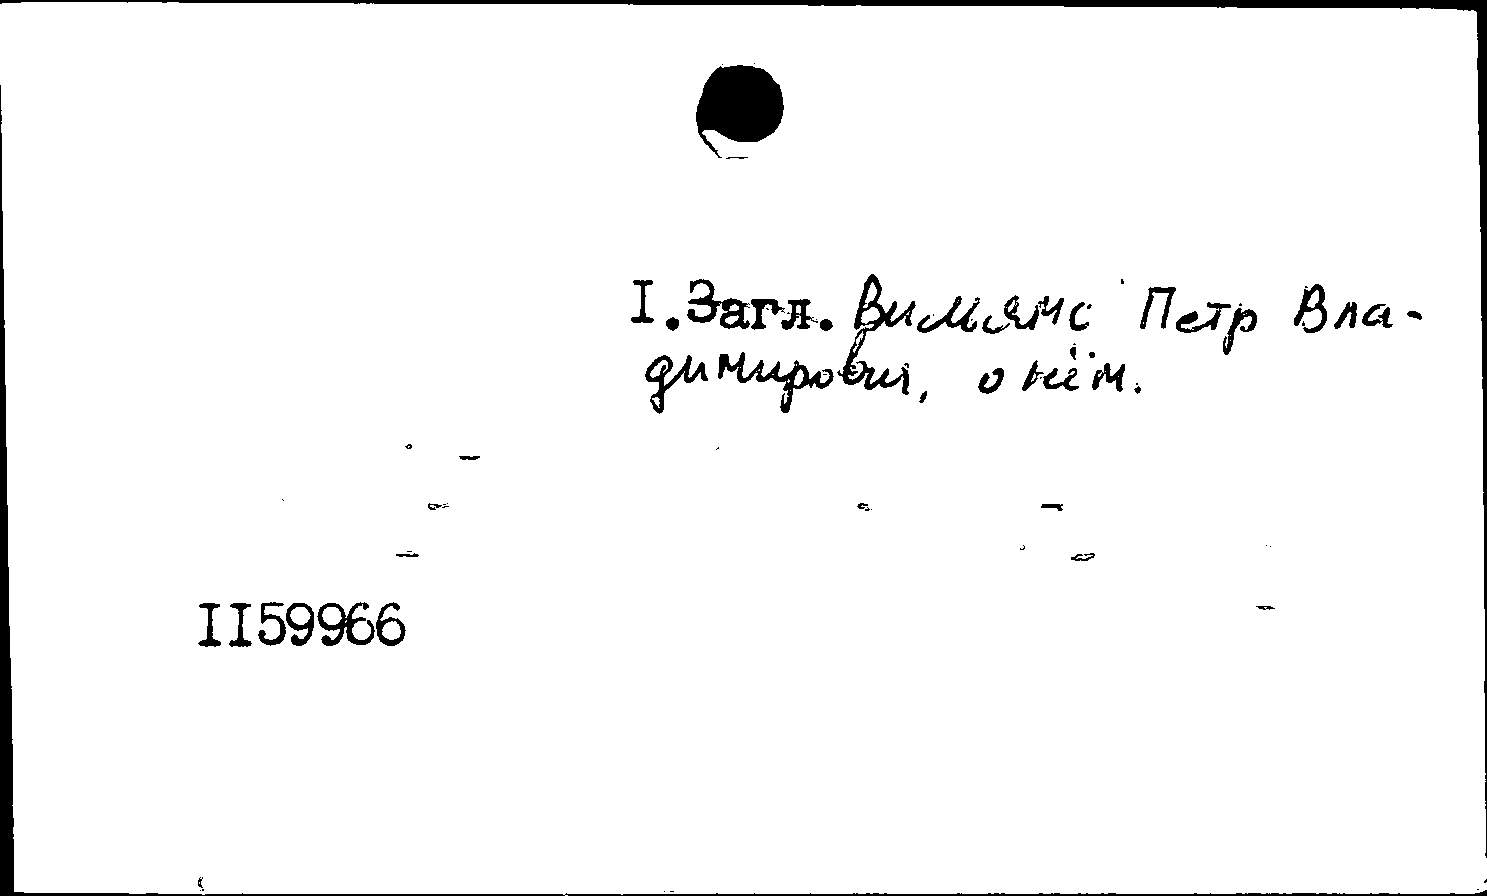 I.Загл. Вильямс Петр Вла-
димирович, о нём.
II59966